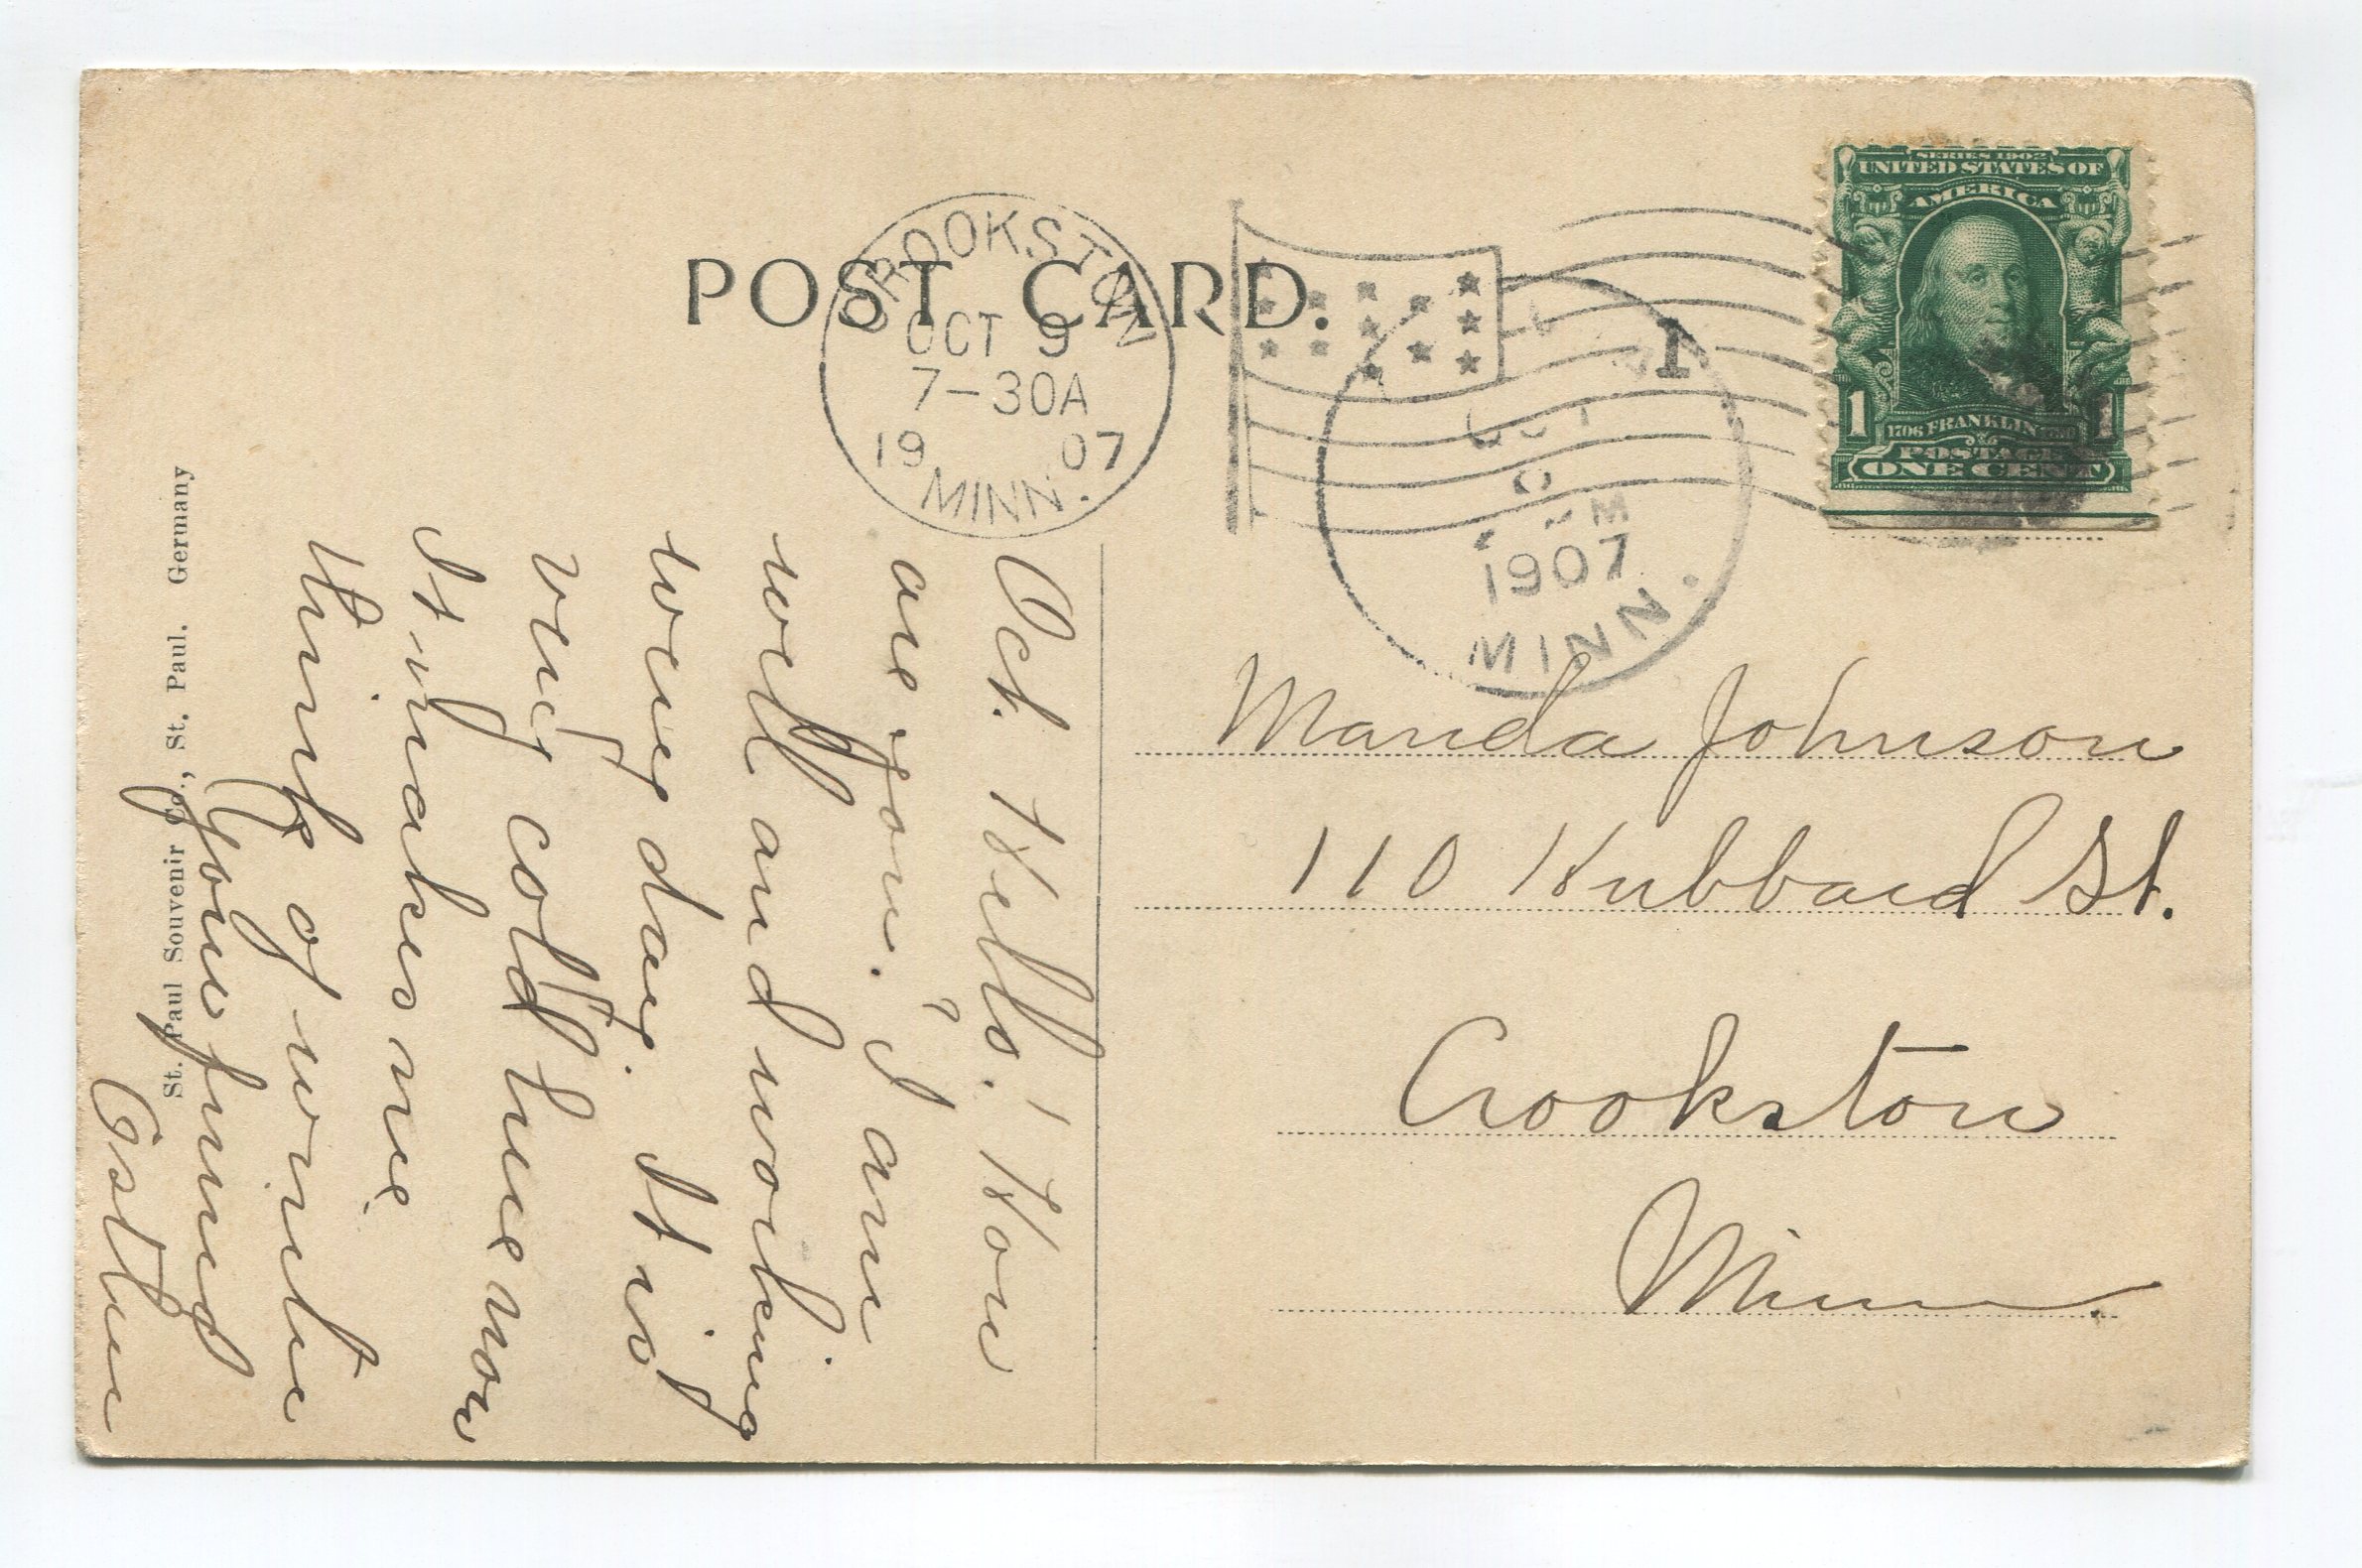 POST CARD.
CROOKSTON
OCT 9
7-30A
19 07
MINN.
1
OCT
1907
MINN.
SERIES 1902
UNITED STATES OF
AMERICA
1 1706 FRANKLIN 1790 1
POSTAGE
ONE CENT
Oct. Hello! How
are you.? I am
well and working
every day. It is
very cold here now
It makes me
think of winter
Your friend
St. Paul Souvenir Co., St. Paul. Germany
Manda Johnson
110 Hubbard St.
Crookston
Minn.